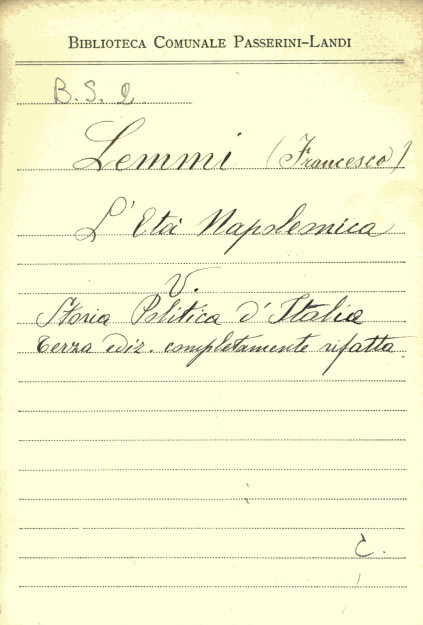 BIBLIOTECA COMUNALE PASSERINI-LANDI
B. S. 2.
Lemmi (Francesco)
L'Età Napoleonica
V.
Storia Politica d'Italia
terza ediz. completamente rifatta.
C.